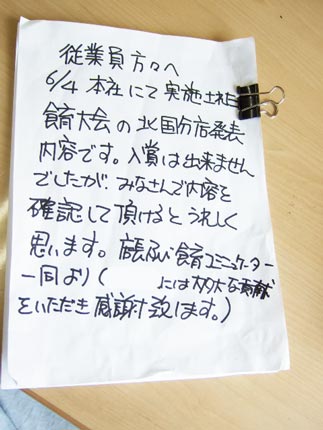 従業員方々へ
6/4 本社にて実施された
食育大会の北国分店発表
内容です。入賞は出来ません
でしたが、みなさんで内容を
確認して頂けるとうれしく
思います。店長及び食育コミュニケーター
一同より(　　には多大な貢献
をいただき感謝致します。)